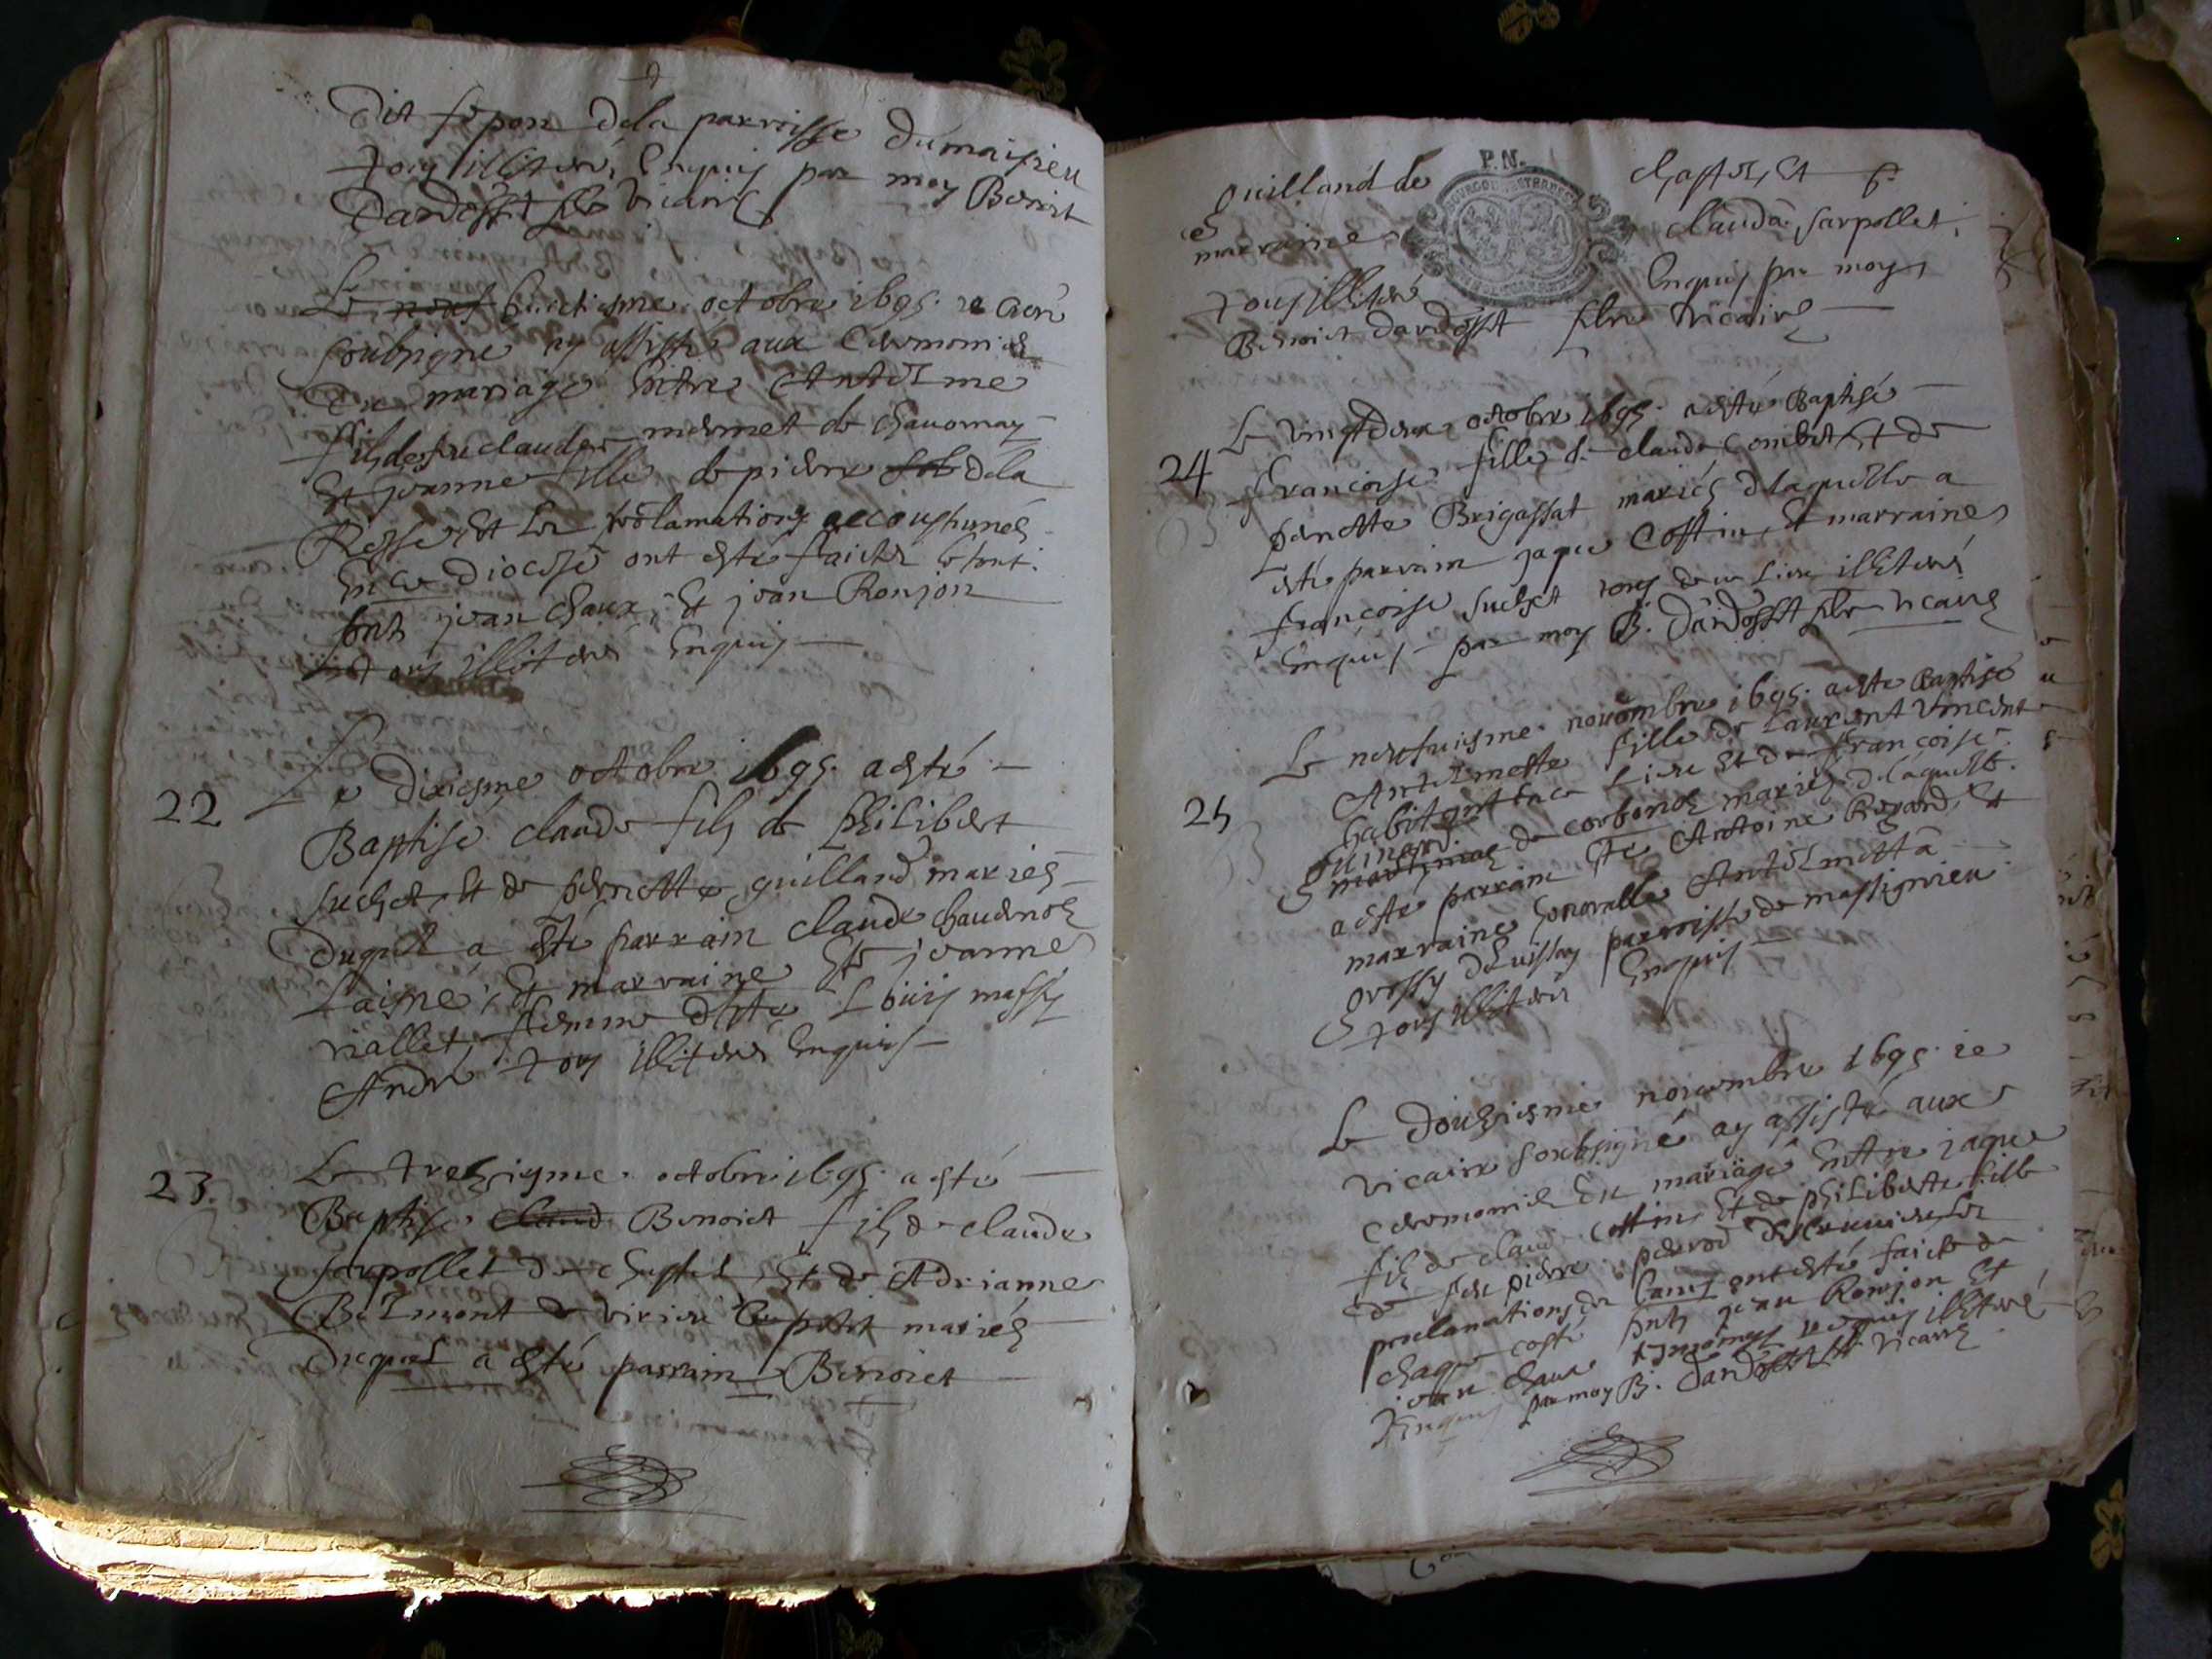 Dit fepon dela parroisse dumaisieu
tous illiterés, Enquis par moy Benoit
Dardosset pbr vicaire
Le neuf huictiesme octobre 1695. ie
soubsigne ay assisté aux Ceremonies
Du mariage Entre Antelme
fils defeu claude mermet de chauornay
Et jeanne fille de pierre dela
Et les proclamations accoustumés
En ce Diocese ont esté faictes
sont jean chaux, Et jean Ronjon
tous illiterés Enquis
22 Le dixiesme octobre 1695. a esté
Baptisé claude fils de philibert
suchet, Et de pernette guilland mariés
Duquel a esté parrain claude chaudenol
Laisné, Et marraine jeanne
viallet, femme Louis massy
André tous illiterés Enquis
23. Le treziesme octobre 1695. a esté
Baptisé claud Benoict fils de claude
sarpollet de chastel, Et de Adrianne
Belmont de virieu le petit mariés
Duquel a esté parrain Benoict
P.N.
guilland de chastel, Et 6.
marraine clauda sarpollet,
tous illiterés Enquis par moy,
Benoit dardosset pbr vicaire
Le vingtdeux octobre 1695. a esté Baptisé
24 francoise fille de claude Combet Et de
pernette Brigassat mariés dlaquelle a
esté parrain jaque Cottin, Et marraine
francoise suchet tous de ce Lieu illiterés
Enquis par moy B. dardosset pbr vicaire
Le neufuiesme nouembre 1695. a esté Baptisé
25 Antelmette fille de Laurent vincent
habitant ence Lieu Et de francoise
guinard de corbonod mariés dlaquelle
a esté parrain Antoine Et
marraine honorable Antelmetta
grossy parroisse de massignieu
tous illiterés Enquis
Le douziesme nouembre 1695. ie
vicaire soubsigné ay assisté aux
ceremonies Du mariage Entre jaque
fils de claude Cottin, Et de philiberte fille
de feu pierre
proclamations de bans ont esté faictes de
chaque costé jean Ronjon Et
jean chaux tesmoings requis illiterés
Enquis par moy B. dardosset pbr vicaire